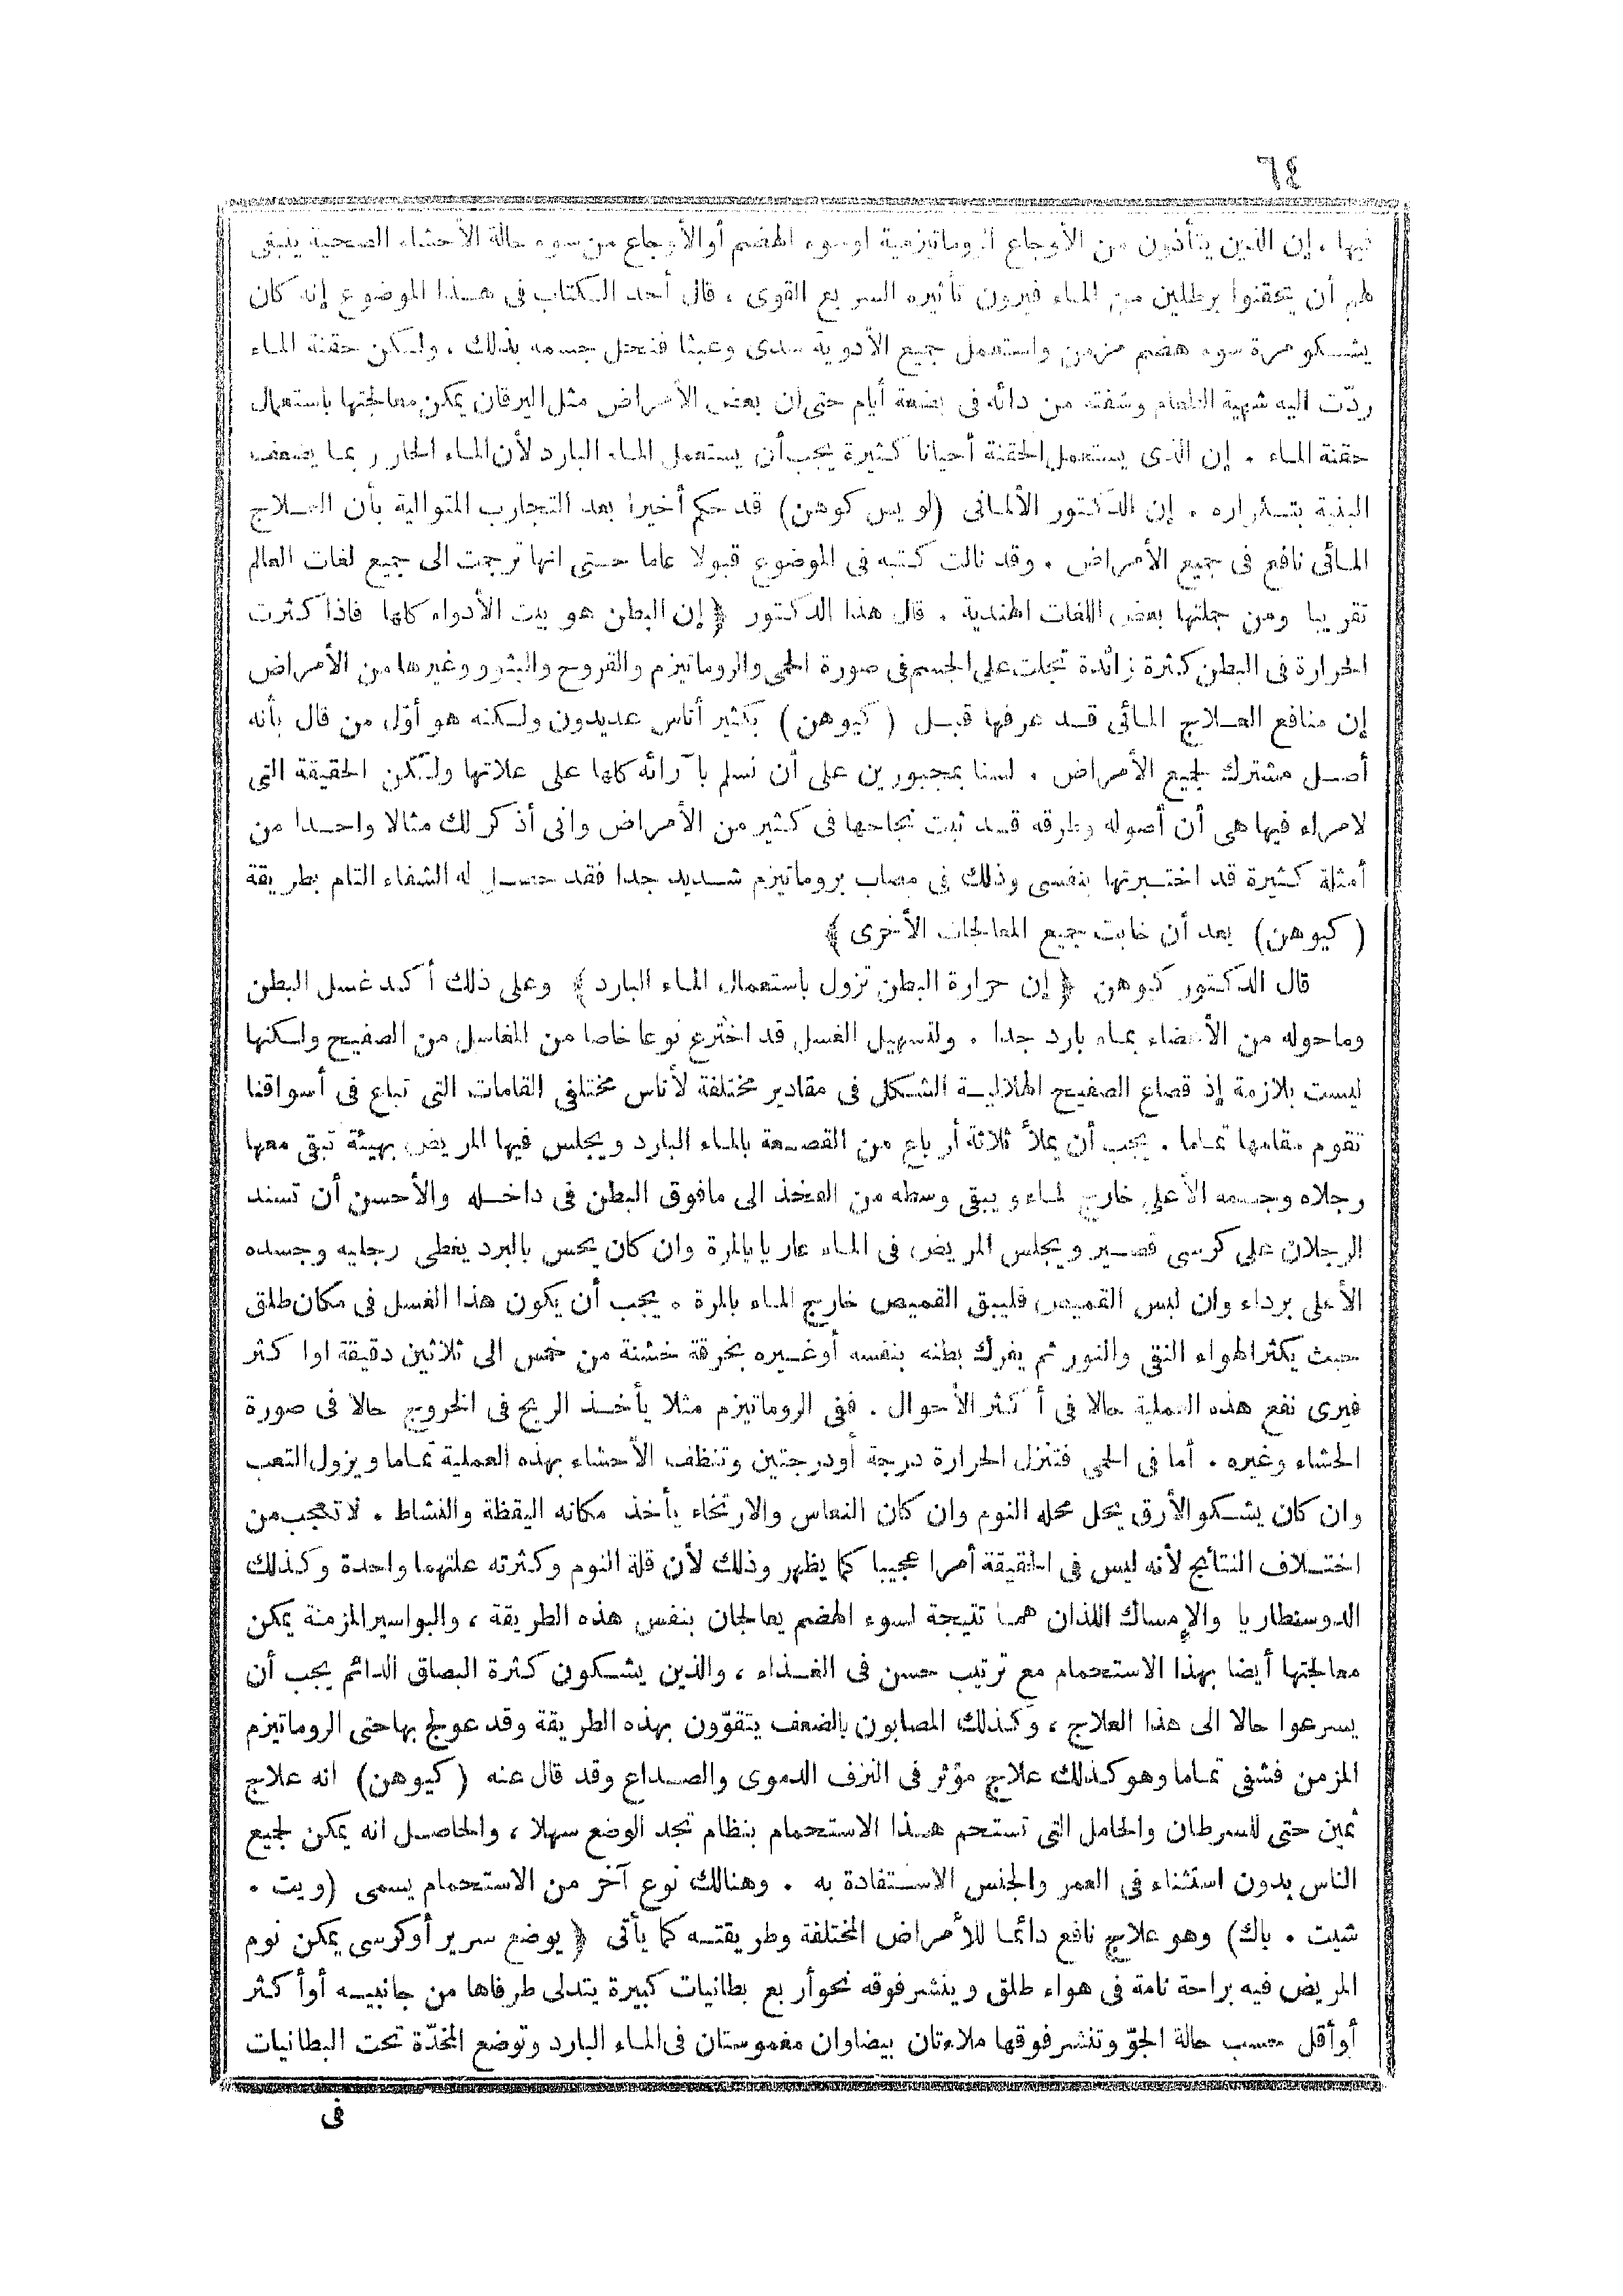 ٦٤
فيها . إن الذين يتأذون من الأوجاع الروماتيزمية أو سوء الهضم أو الأوجاع من سوء حالة الأحشاء الصحية ينبغى
لهم أن يحتقنوا برطلين من الماء فيرون تأثيره السريع القوى ، قال أحد الكتاب فى هذا الموضوع إنه كان
يشكو مرة سوء هضم مزمن واستعمل جميع الأدوية سدى وعبثا فنحل جسمه بذلك ، ولكن حقنة الماء
ردّت اليه شهية الطعام وشفته من دائه فى بضعة أيام حتى ان بعض الأمراض مثل اليرقان يمكن معالجتها باستعمال
حقنة الماء . إن الذى يستعمل الحقنة أحيانا كثيرة يجب أن يستعمل الماء البارد لأن الماء الحار ربما يضعف
البنية بتكراره . إن الدكتور الألمانى (لويس كوهن) قد حكم أخيرا بعد التجارب المتوالية بأن العلاج
المائى نافع فى جميع الأمراض . وقد نالت كتبه فى الموضوع قبولا عاما حتى انها ترجمت الى جميع لغات العالم
تقريبا ومن جملتها بعض اللغات الهندية . قال هذا الدكتور ﴿ إن البطن هو بيت الأدواء كلها فاذا كثرت
الحرارة فى البطن كثرة زائدة تجلت على الجسم فى صورة الحمى والروماتيزم والقروح والبثور وغيرها من الأمراض
إن منافع العلاج المائى قد عرفها قبل (كيوهن) بكثير أناس عديدون ولكنه هو أوّل من قال بأنه
أصل مشترك لجميع الأمراض . لسنا بمجبورين على أن نسلم بآرائه كلها على علاتها ولكن الحقيقة التى
لامراء فيها هى أن أصوله وطرقه قد ثبت نجاحها فى كثير من الأمراض وانى أذكر لك مثالا واحدا من
أمثلة كثيرة قد اختبرتها بنفسى وذلك فى مصاب بروماتيزم شديد جدا فقد حصل له الشفاء التام بطريقة
(كيوهن) بعد أن خابت جميع المعالجات الأخرى ﴾
قال الدكتور كيوهن ﴿ إن حرارة البطن تزول باستعمال الماء البارد ﴾ وعلى ذلك أكد غسل البطن
وماحوله من الأعضاء بماء بارد جدا . ولتسهيل الغسل قد اخترع نوعا خاصا من المغاسل من الصفيح ولكنها
ليست بلازمة إذ قصاع الصفيح الهلالية الشكل فى مقادير مختلفة لأناس مختلفى القامات التى تباع فى أسواقنا
تقوم مقامها تماما . يجب أن يملأ ثلاثة أرباع من القصعة بالماء البارد ويجلس فيها المريض بهيئة تبقى معها
رجلاه وجسمه الأعلى خارج الماء ويبقى وسطه من الفخذ الى مافوق البطن فى داخله والأحسن أن تسند
الرجلان على كرسى قصير ويجلس المريض فى الماء عاريا بالمرة وان كان يحس بالبرد يغطى رجليه وجسده
الأعلى برداء وان لبس القميص فليبق القميص خارج الماء بالمرة . يجب أن يكون هذا الغسل فى مكان طلق
حيث يكثر الهواء النقى والنور ثم يفرك بطنه بنفسه أو غيره بخرقة خشنة من خمس الى ثلاثين دقيقة اواكثر
فيرى نفع هذه العملية حالا فى أكثر الأحوال . ففى الروماتيزم مثلا يأخذ الريح فى الخروج حالا فى صورة
الجشاء وغيره . أما فى الحمى فتنزل الحرارة درجة أو درجتين وتنظف الأحشاء بهذه العملية تماما ويزول التعب
وان كان يشكو الأرق يحل محله النوم وان كان النعاس والارتخاء يأخذ مكانه اليقظة والنشاط . لاتعجب من
اختلاف النتائج لأنه ليس فى الحقيقة أمرا عجيبا كما يظهر وذلك لأن قلة النوم وكثرته علتهما واحدة وكذلك
الدوسنطاريا والإمساك اللذان هما نتيجة لسوء الهضم يعالجان بنفس هذه الطريقة ، والبواسير المزمنة يمكن
معالجتها أيضا بهذا الاستحمام مع ترتيب حسن فى الغذاء ، والذين يشكون كثرة البصاق الدائم يجب أن
يسرعوا حالا الى هذا العلاج ، وكذلك المصابون بالضعف يتقوّون بهذه الطريقة وقد عولج بها حتى الروماتيزم
المزمن فشفى تماما وهو كذلك علاج مؤثر فى النزف الدموى والصداع وقد قال عنه (كيوهن) انه علاج
ثمين حتى للسرطان والحامل التى تستحم هذا الاستحمام بنظام تجد الوضع سهلا ، والحاصل انه يمكن لجميع
الناس بدون استثناء فى العمر والجنس الاستفادة به . وهنالك نوع آخر من الاستحمام يسمى (ويت .
شيت . باك) وهو علاج نافع دائما للأمراض المختلفة وطريقته كما يأتى ﴿ يوضع سرير أوكرسى يمكن نوم
المريض فيه براحة تامة فى هواء طلق وينشر فوقه نحو أربع بطانيات كبيرة يتدلى طرفاها من جانبيه أو أكثر
أو أقل حسب حالة الجوّ وتنشر فوقها ملاءتان بيضاوان مغموستان فى الماء البارد وتوضع المخدّة تحت البطانيات
فى